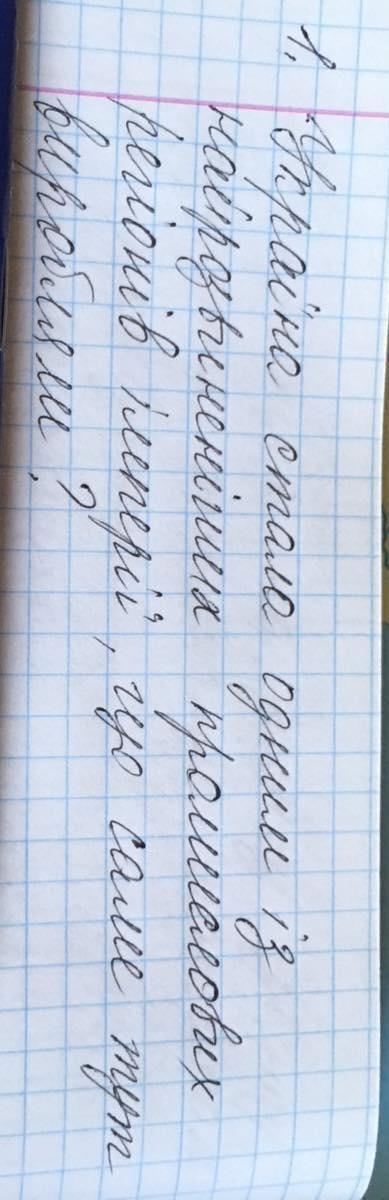 1. Україна стала одним із
найрозвиненіших промислових
регіонів імперії, що саме тут
виробляли?